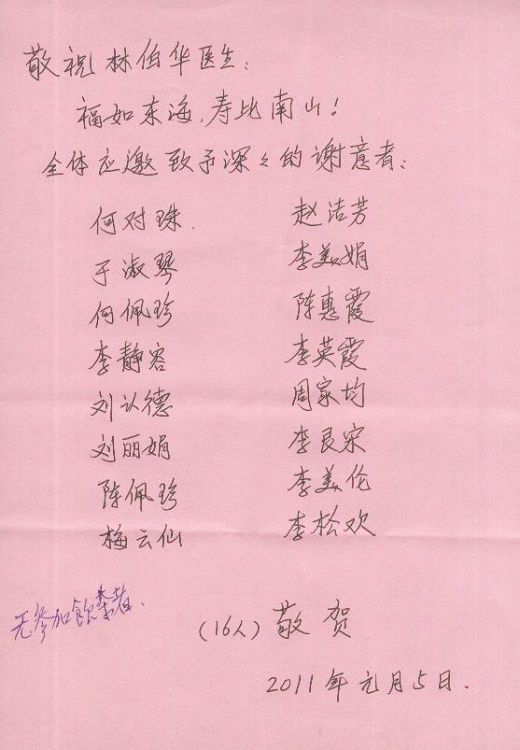 敬祝林伯华医生：
福如东海，寿比南山！
全体应邀致予深々的谢意者：
何对珠 赵洁芳
于淑琴 李美娟
何佩珍 陈惠霞
李静容 李英霞
刘认德 周家均
刘丽娟 李良宋
陈佩珍 李美伦
梅云仙 李松欢
无参加飲茶者.
（16人）敬贺
2011年元月5日.